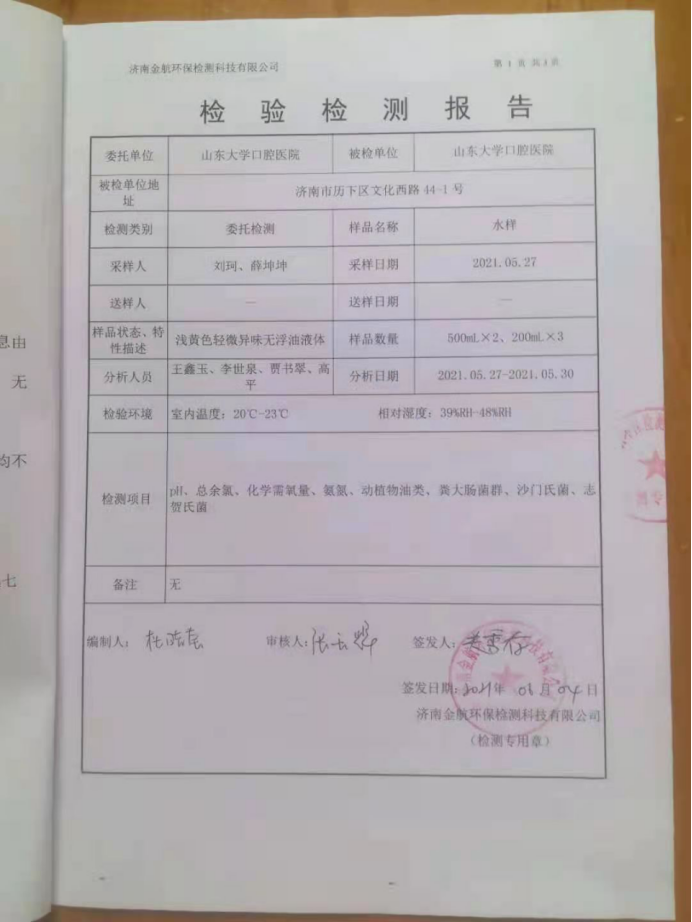 济南金航环保检测科技有限公司 第 1 页 共 3 页
检 验 检 测 报 告
委托单位 山东大学口腔医院 被检单位 山东大学口腔医院
被检单位地
址
济南市历下区文化西路 44-1 号
检测类别 委托检测 样品名称 水样
采样人 刘珂、薛坤坤 采样日期 2021.05.27
送样人 — 送样日期 —
样品状态、特
性描述
浅黄色轻微异味无浮油液体 样品数量 500mL×2、200mL×3
分析人员 王鑫玉、李世泉、贾书翠、高
平
分析日期 2021.05.27-2021.05.30
检验环境 室内温度：20℃-23℃ 相对湿度：39%RH-48%RH
检测项目 pH、总余氯、化学需氧量、氨氮、动植物油类、粪大肠菌群、沙门氏菌、志
贺氏菌
备注 无
编制人： 审核人： 签发人：
签发日期：2021年 月 04 日
济南金航环保检测科技有限公司
（检测专用章）
息由
无
均不
七